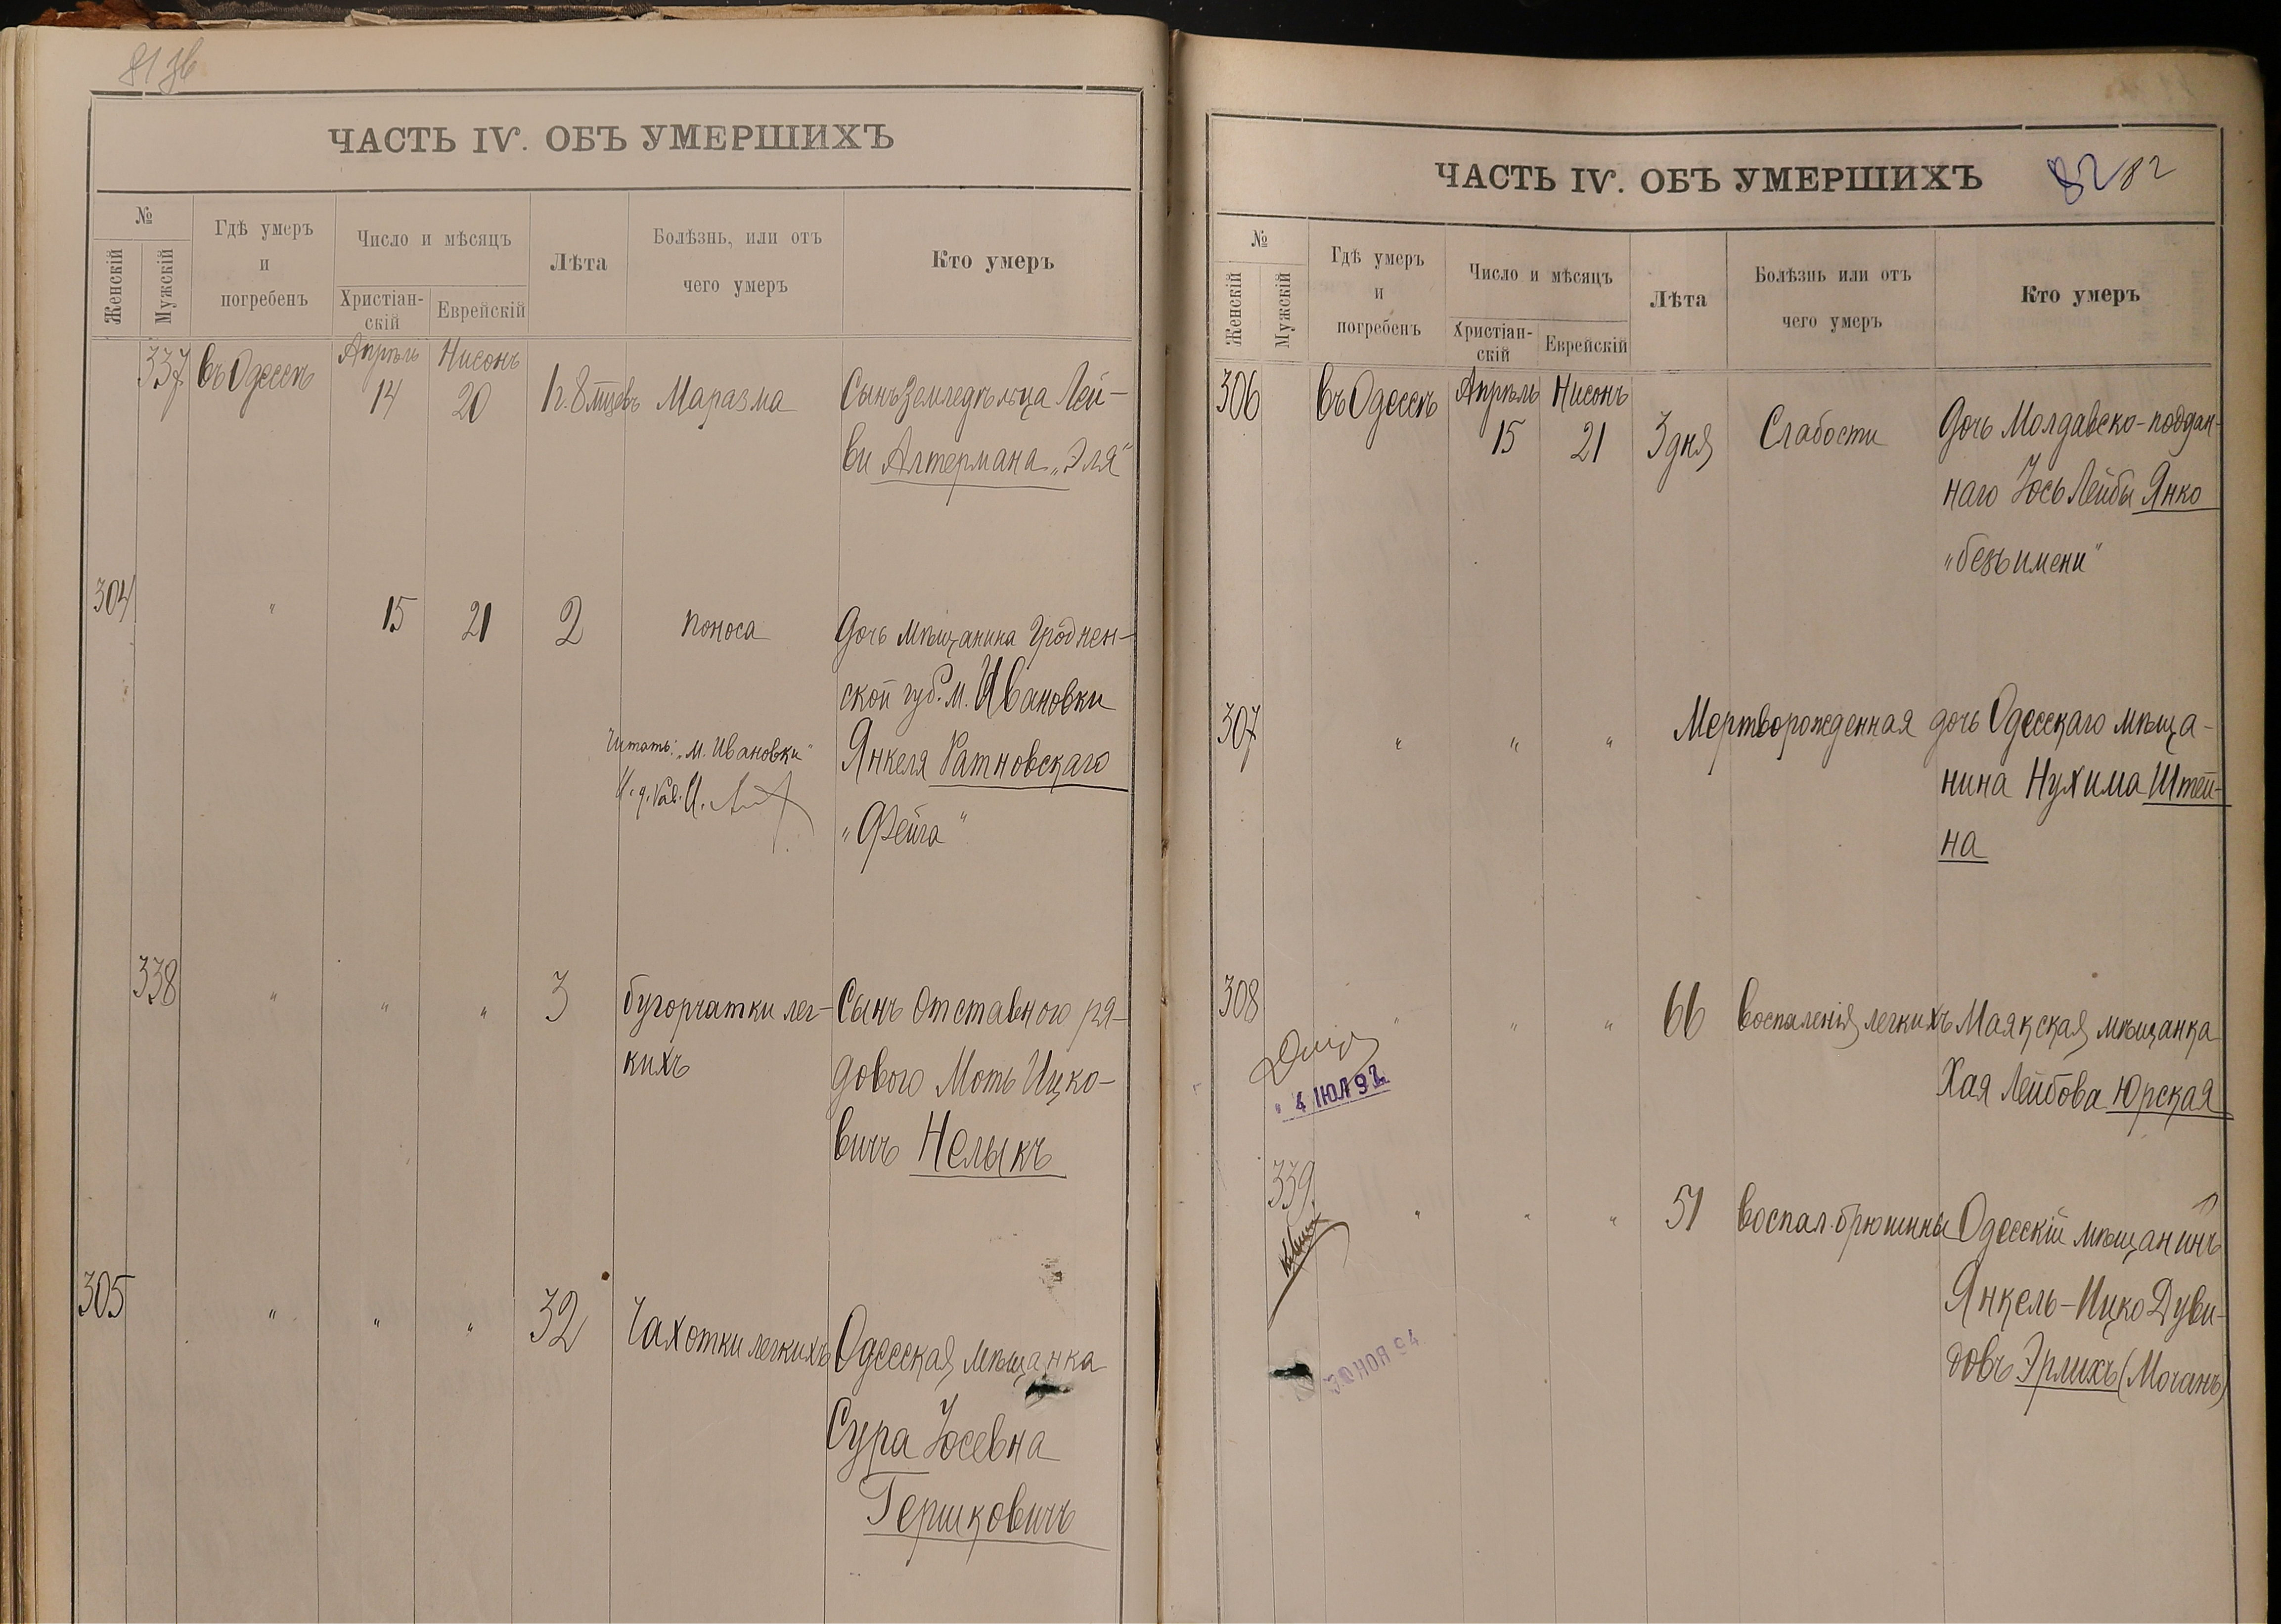 81 зв
ЧАСТЬ IV. ОБЪ УМЕРШИХЪ
№
Женскій
Мужскій
Гдѣ умеръ
и
погребенъ
Число и мѣсяцъ
Христіан-
скій
Еврейскій
Лѣта
Болѣзнь, или отъ
чего умеръ
Кто умеръ
337 въ Одессѣ Апрѣль 14 Нисонъ 20 1 г. 8 мцевъ Маразма Сынъ Земледѣльца Лей-
ви Алтермана „Эля“
304 " 15 21 2 поноса Дочь мѣщанина Гроднен-
ской губ. м. Ивановки
Читать: „м. Ивановки" Янкеля Ратновскаго
И. д. Каз. И.
„Фейга“
338 " " " 3 бугорчатки лег- Сынъ отставного ря-
кихъ дового Мотъ Ицко-
вичъ Нелыкъ
305 " " " 32 Чахотки легкихъ Одесская мѣщанка
Сура Іосевна
Гершковичъ
ЧАСТЬ IV. ОБЪ УМЕРШИХЪ 82 82
№
Женскій
Мужскій
Гдѣ умеръ
и
погребенъ
Число и мѣсяцъ
Христіан-
скій
Еврейскій
Лѣта
Болѣзнь или отъ
чего умеръ
Кто умеръ
306 въ Одессѣ Апрѣль 15 Нисонъ 21 3 дня Слабости Дочь Молдавско-поддан-
наго Іось Лейбы Янко
„безъ имени“
307 " " " Мертворожденная дочь Одесскаго мѣща-
нина Нухима Штей-
на
308 " " " 66 воспаленія легкихъ Маякская мѣщанка
Хая Лейбова Юрская
4 ІЮЛ 92
339 " " " 51 воспал. брюшины Одесскій мѣщанинъ
Янкель-Ицко Дуви-
довъ Эрлихъ (Мочанъ)
30 НОЯ 94